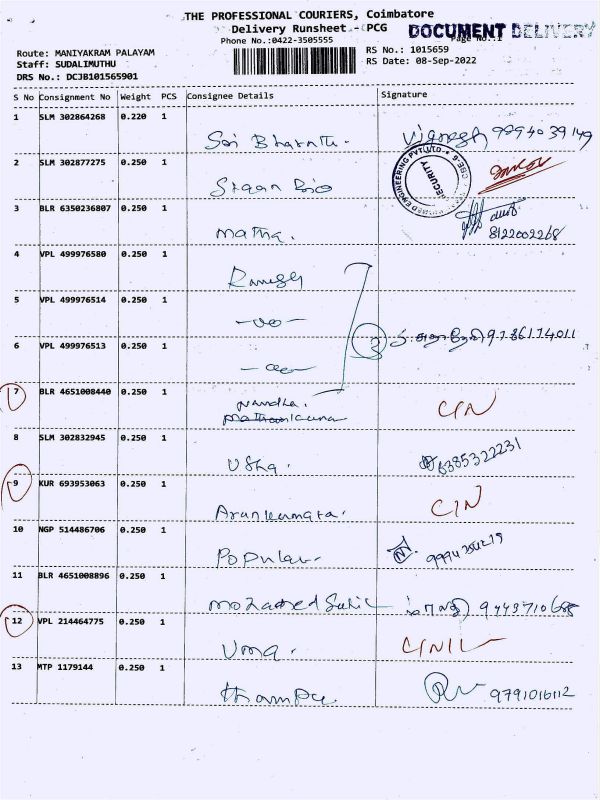 THE PROFESSIONAL COURIERS, Coimbatore
Delivery Runsheet - PCG
DOCUMENT DELIVERY
Phone No.:0422-3505555
Page No.:1
Route: MANIYAKRAM PALAYAM
RS No.: 1015659
Staff: SUDALIMUTHU
RS Date: 08-Sep-2022
DRS No.: DCJB101565901
S No Consignment No Weight PCS Consignee Details Signature
1 SLM 302864268 0.220 1
Sai Bharath. Vignesh 9894039149
2 SLM 302877275 0.250 1
ENGINEERING PVT LTD SECURITY
Staan Bio
3 BLR 6350236807 0.250 1
Matha. 8122002268
4 VPL 499976580 0.250 1
Ramesh
5 VPL 499976514 0.250 1
- do -
6 VPL 499976513 0.250 1
- do - 3 9786174011
7 BLR 4651008440 0.250 1
Nandha. C/N
8 SLM 302832945 0.250 1
Usha. 6385322231
9 KUR 693953063 0.250 1
Arunkumara. C/N
10 NGP 514486706 0.250 1
Popular
11 BLR 4651008896 0.250 1
Mohamed
12 VPL 214464775 0.250 1
Uma.
13 MTP 1179144 0.250 1
9791016112